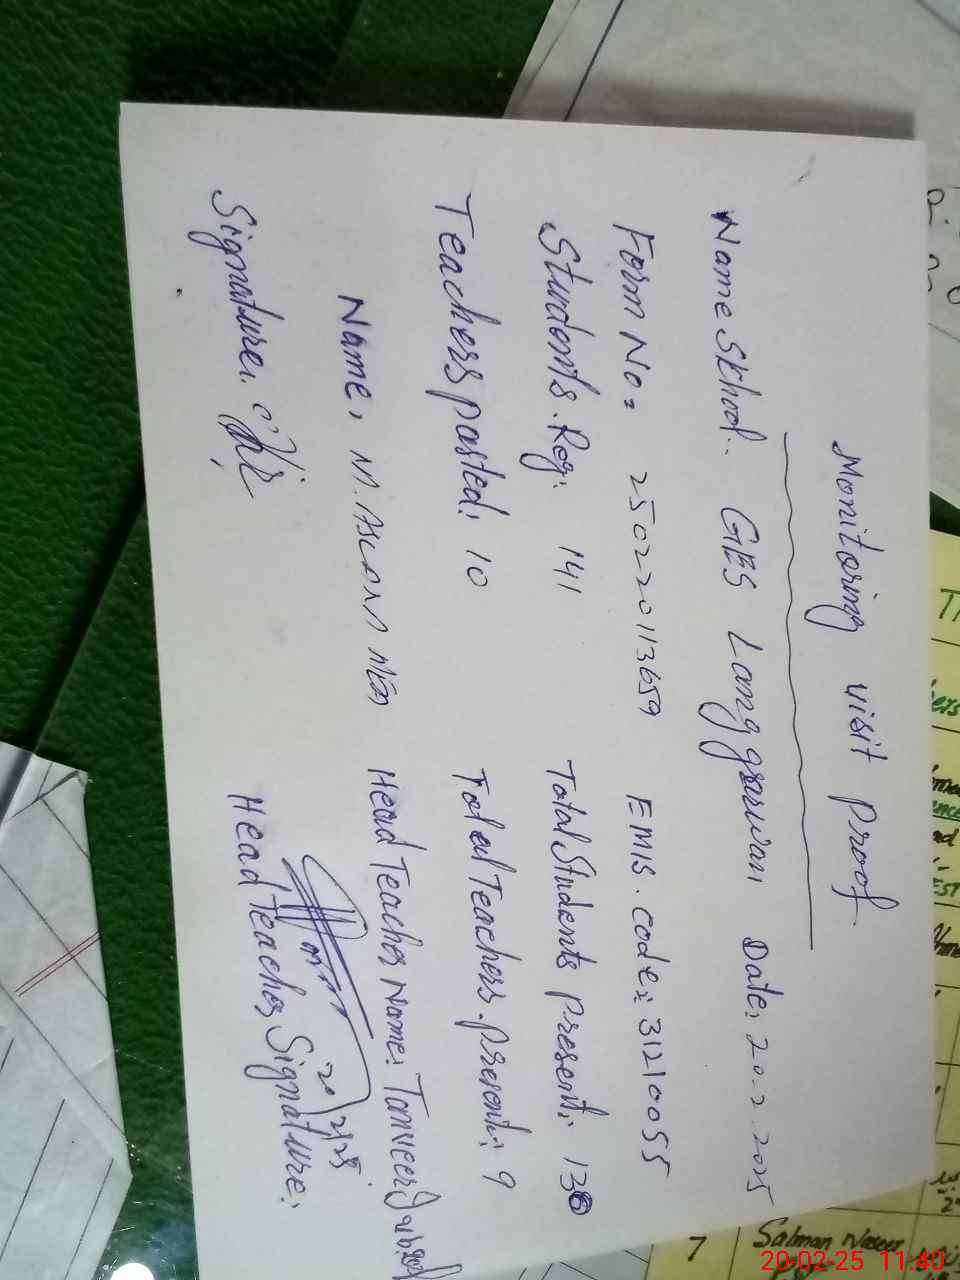 Monitoring visit Proof
Name Skhool. GES Lang grarwan Date: 20.2.2025
Form No: 250220113659 EMIS. code: 31210055
Stundents. Reg: 141 Total Students present: 136
Teachers pasted: 10 Total Teachers. present: 9
Name: M. Aslam Head Teacher Name: Tanveer
Signature: Head Teacher Signature:
20/2/25
7 Salman Naseer
20-02-25 11:40